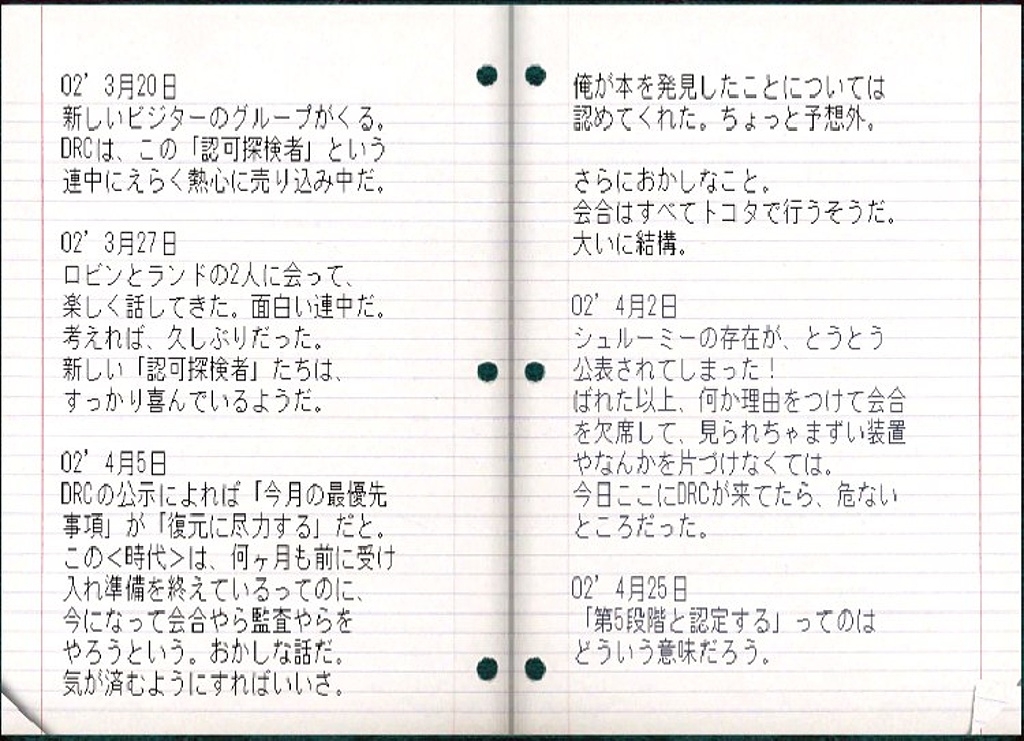 02’ 3月20日
新しいビジターのグループがくる。
DRCは、この「認可探検者」という
連中にえらく熱心に売り込み中だ。
02’ 3月27日
ロビンとランドの2人に会って、
楽しく話してきた。面白い連中だ。
考えれば、久しぶりだった。
新しい「認可探検者」たちは、
すっかり喜んでいるようだ。
02’ 4月5日
DRCの公示によれば「今月の最優先
事項」が「復元に尽力する」だと。
この<時代>は、何ヶ月も前に受け
入れ準備を終えているってのに、
今になって会合やら監査やらを
やろうという。おかしな話だ。
気が済むようにすればいいさ。
俺が本を発見したことについては
認めてくれた。ちょっと予想外。
さらにおかしなこと。
会合はすべてトコタで行うそうだ。
大いに結構。
02’ 4月2日
シュルーミーの存在が、とうとう
公表されてしまった！
ばれた以上、何か理由をつけて会合
を欠席して、見られちゃまずい装置
やなんかを片づけなくては。
今日ここにDRCが来てたら、危ない
ところだった。
02’ 4月25日
「第5段階と認定する」ってのは
どういう意味だろう。